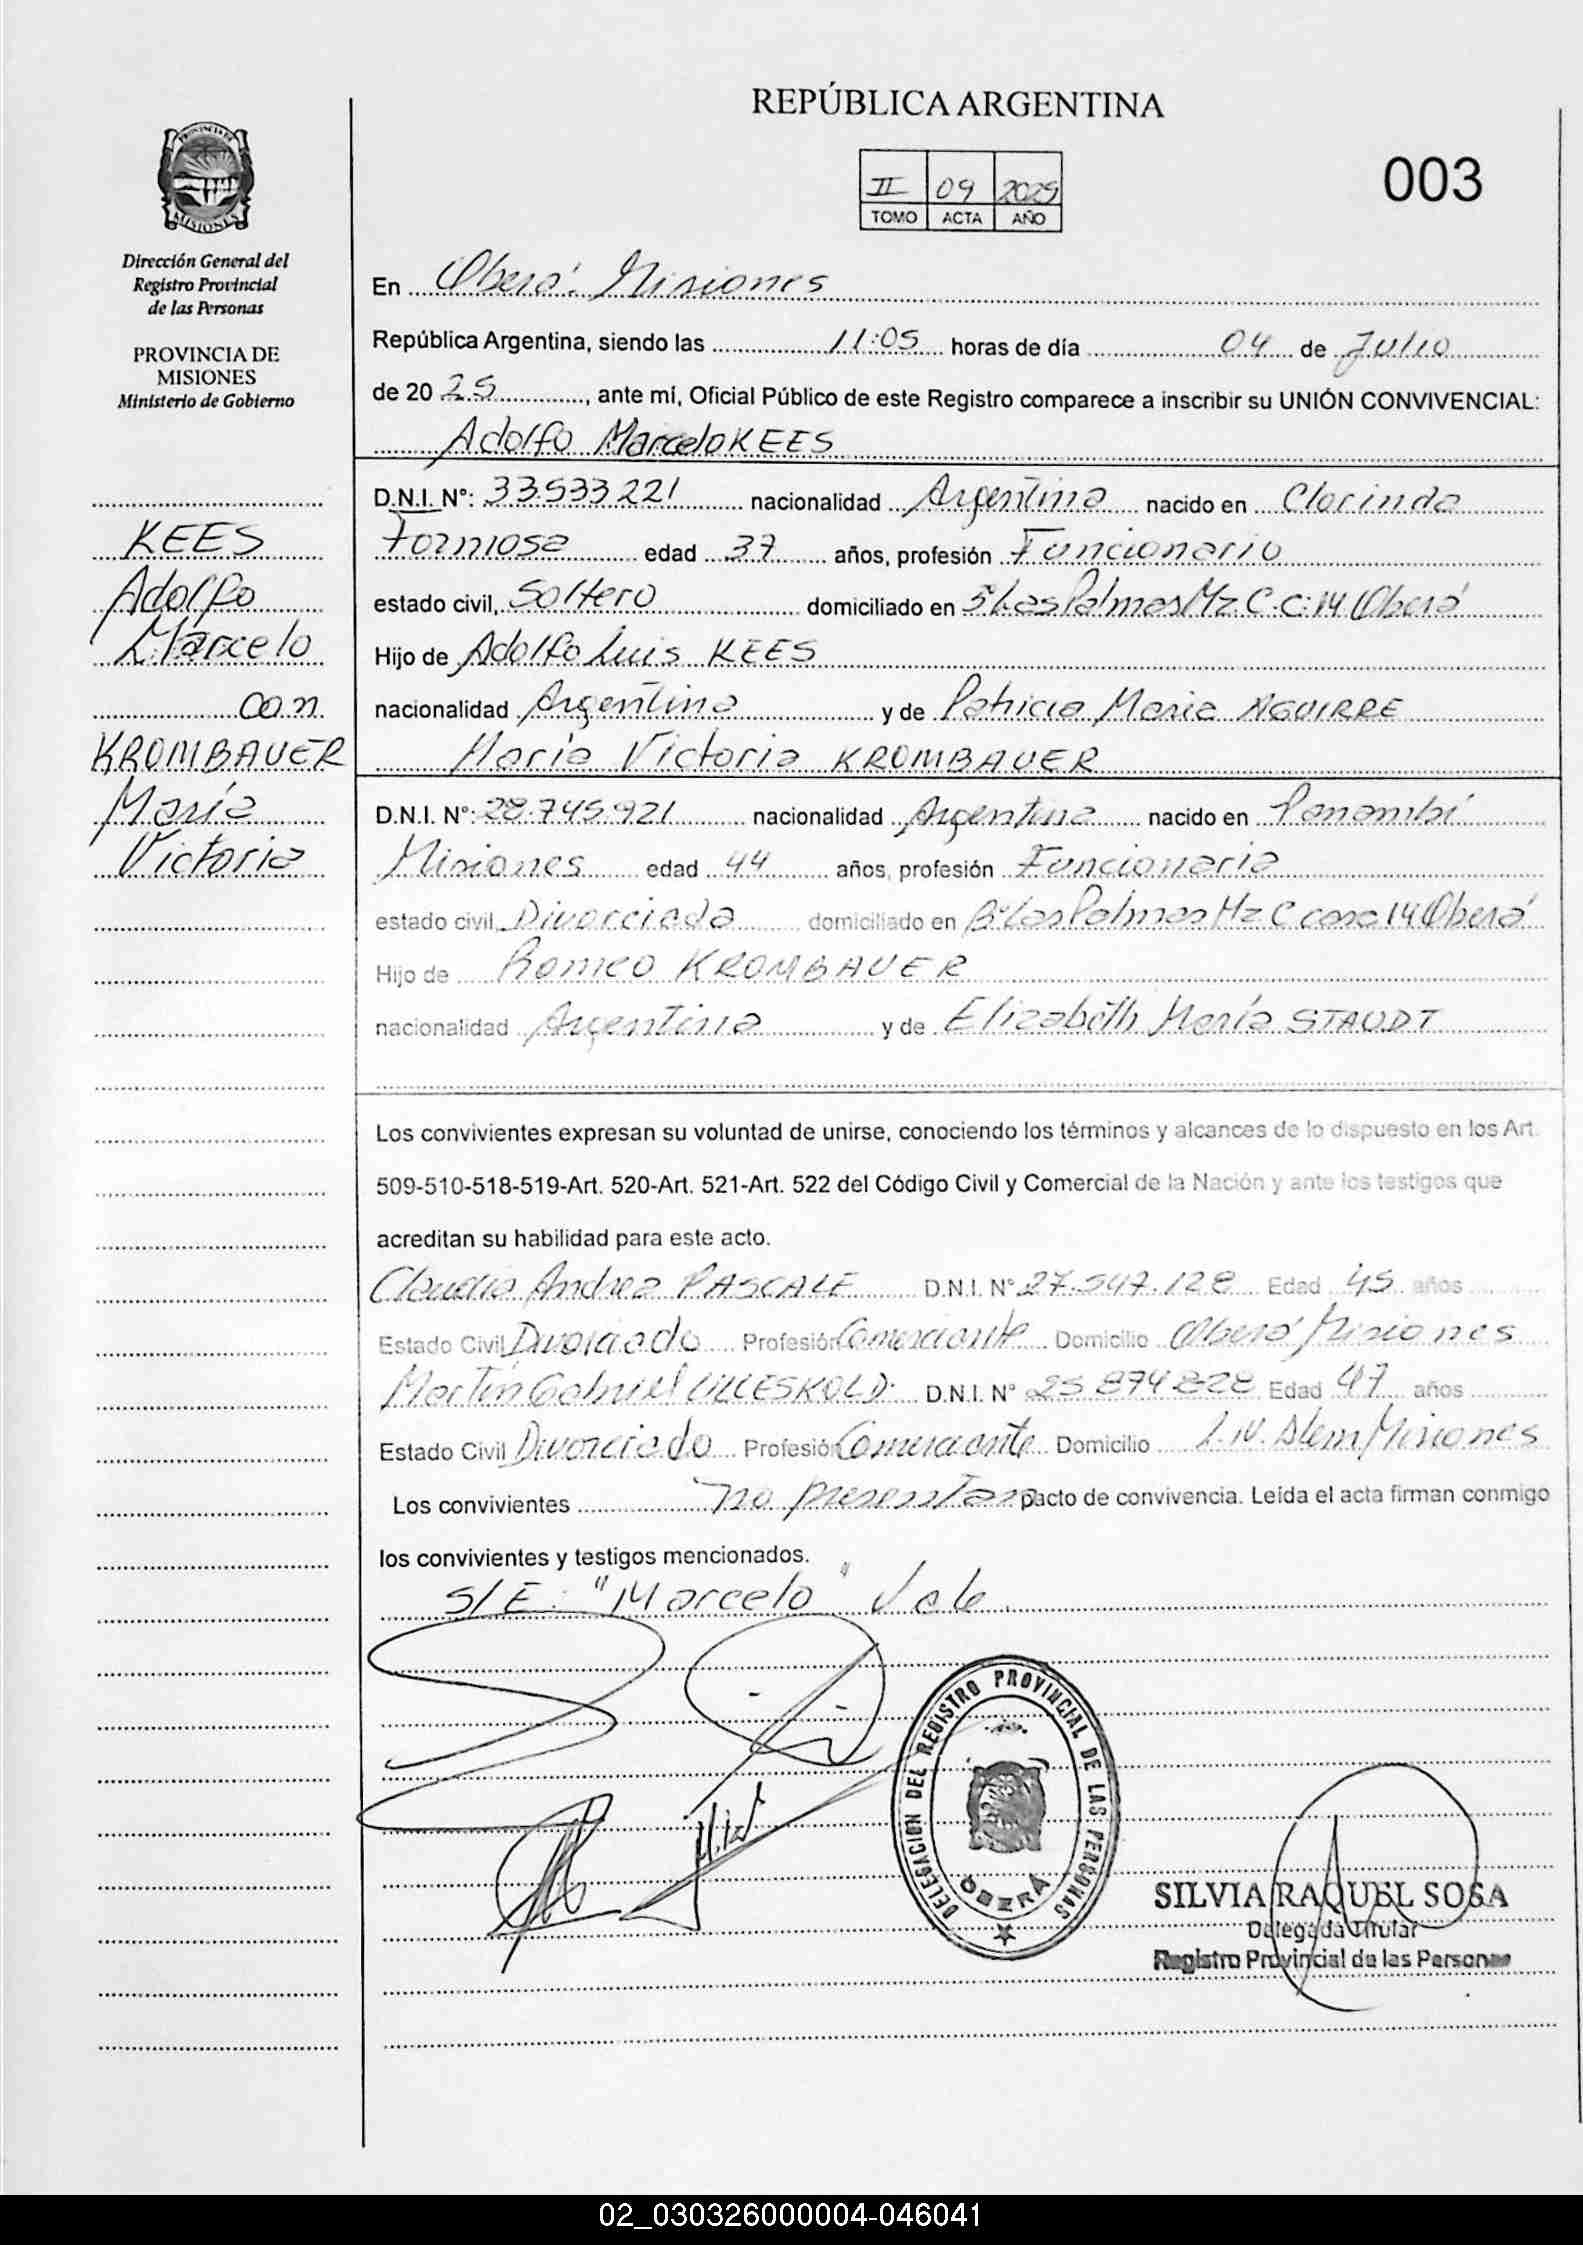 REPÚBLICA ARGENTINA
003
II 09 2025
TOMO ACTA AÑO
PROVINCIA DE
MISIONES
Dirección General del
Registro Provincial
de las Personas
PROVINCIA DE
MISIONES
Ministerio de Gobierno
KEES
Adolfo
Marcelo
con
KROMBAUER
María
Victoria
En Oberá. Misiones
República Argentina, siendo las 11:05 horas de día 04 de Julio
de 20 25, ante mí, Oficial Público de este Registro comparece a inscribir su UNIÓN CONVIVENCIAL:
Adolfo Marcelo KEES
D.N.I. N°: 33.533221 nacionalidad Argentina nacido en Clorinda
Formosa edad 37 años, profesión Funcionario
estado civil, Soltero domiciliado en Las Palmas Mz. C. c: 14 Oberá
Hijo de Adolfo Luis KEES
nacionalidad Argentina y de Patricia Maria AGUIRRE
María Victoria KROMBAUER
D.N.I. N°: 28.745.921 nacionalidad Argentina nacido en Panambí
Misiones edad 44 años, profesión Funcionaria
estado civil, Divorciada domiciliado en B° Las Palmas Mz C casa 14 Oberá
Hijo de Romeo KROMBAUER
nacionalidad Argentina y de Elizabeth María STAUDT
Los convivientes expresan su voluntad de unirse, conociendo los términos y alcances de lo dispuesto en los Art.
509-510-518-519-Art. 520-Art. 521-Art. 522 del Código Civil y Comercial de la Nación y ante los testigos que
acreditan su habilidad para este acto.
Claudia Andrea PASCALE D.N.I. N° 27.547.128 Edad 45 años
Estado Civil Divorciado Profesión Comerciante Domicilio Oberá Misiones
Martín Gabriel LILLESKOLD. D.N.I. N° 25 874 828 Edad 47 años
Estado Civil Divorciado Profesión Comerciante Domicilio L.N. Alem Misiones
Los convivientes no presentan pacto de convivencia. Leída el acta firman conmigo
los convivientes y testigos mencionados.
S/E: "Marcelo" Vale.
DELEGACION DEL REGISTRO PROVINCIAL DE LAS PERSONAS
OBERÁ
SILVIA RAQUEL SOSA
Delegada Titular
Registro Provincial de las Personas
02_030326000004-046041